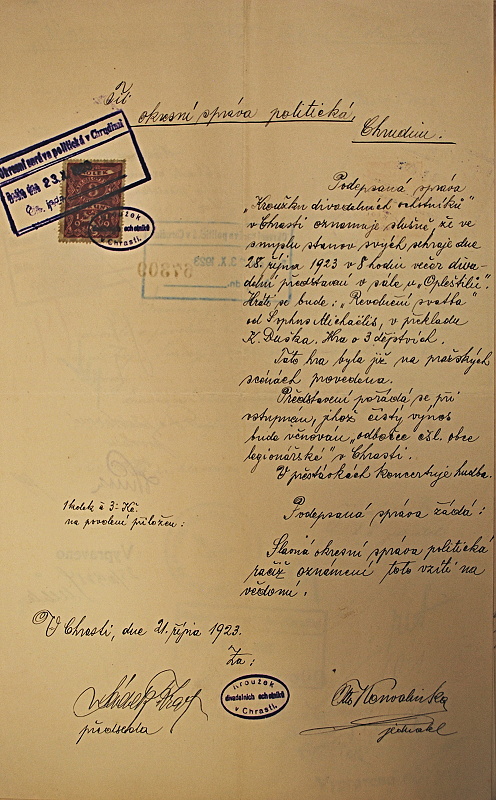 Okresní správa politická v Chrudimi
Došlo dne 23.X.
Kroužek
v Chrasti.
Sl.
okresní správa politická,
Chrudim.
Podepsaná správa
„Kroužku divadelních ochotníků"
v Chrasti oznamuje slušně, že ve
smyslu stanov svých sehraje dne
28. října 1923 v 8 hodin večer diva-
delní představení v sále u „Opleštilů".
Hráti se bude: „Revoluční svatba"
od Sophus Michaëlis, v překladu
K. Duška. Hra o 3 dějstvích.
Tato hra byla již na pražských
scénách provedena.
Představení pořádá se při
vstupném, jehož čistý výnos
bude věnován „odbočce čsl. obce
legionářské" v Chrasti.
V přestávkách koncertuje hudba.
1 kolek à 3.- Kč.
na povolení přiložen:
Podepsaná správa žádá:
Slavná okresní správa politická
račiž oznámení toto vzíti na
vědomí.
V Chrasti, dne 21. října 1923.
Za:
Kroužek
divadelních ochotníků
v Chrasti.
Otto
předseda
jednatel